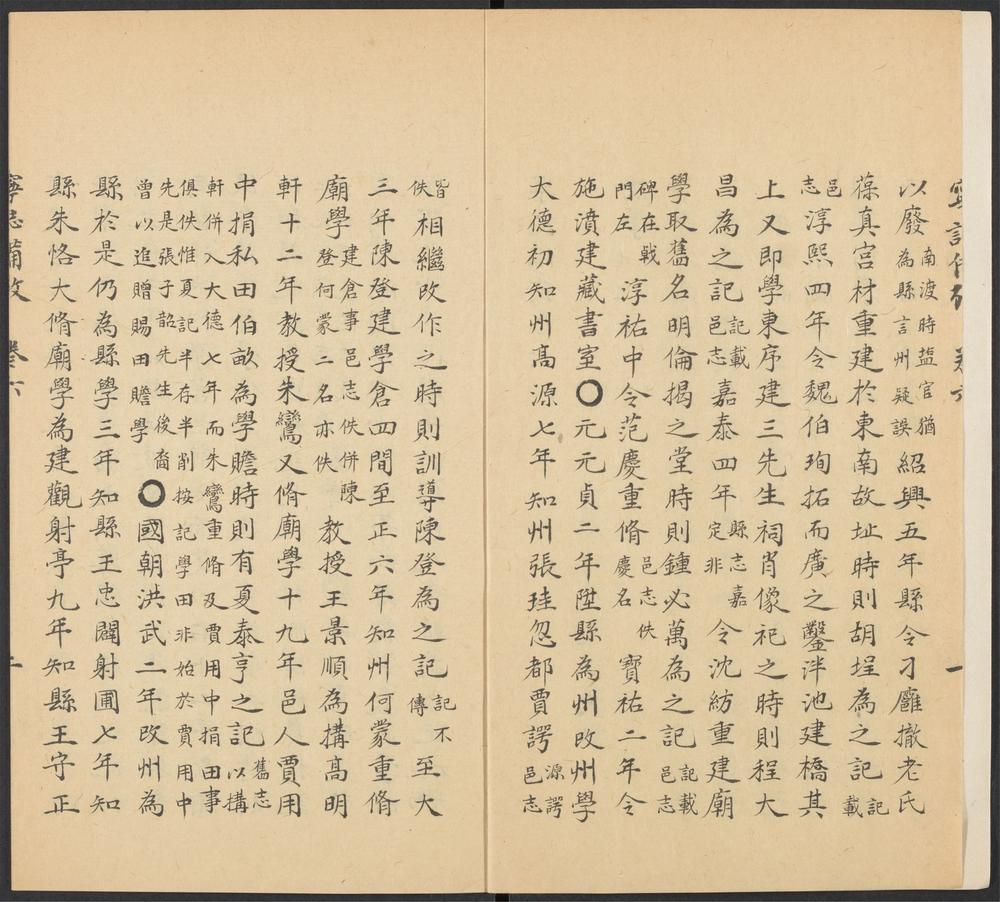 以廢南渡時盐官猶為縣言州疑誤紹興五年縣令刁廱撤老氏
葆真宮材重建於東南故址時則胡埕為之記記載
邑志淳熙四年令魏伯珣拓而廣之鑿泮池建橋其
上又即學東序建三先生祠肖像祀之時則程大
昌為之記記載邑志嘉泰四年縣志嘉定非令沈紡重建廟
學取舊名明倫揭之堂時則鍾必萬為之記記載邑志
碑在戟門左淳祐中令范慶重脩邑志佚慶名寶祐二年令
施濆建藏書室○元元貞二年陞縣為州改州學
大德初知州高源七年知州張珪忽都賈諤源諤邑志
皆佚相繼改作之時則訓導陳登為之記記不傳至大
三年陳登建學倉四間至正六年知州何蒙重脩
廟學建倉事邑志佚併陳登何蒙二名亦佚教授王景順為搆高明
軒十二年教授朱鸞又脩廟學十九年邑人賈用
中捐私田伯畝為學贍時則有夏泰亨之記舊志以搆
軒併入大德七年而朱鸞重脩及賈用中捐田事俱佚惟夏記半存半削按記學田非始於賈用中
先是張子韶先生後裔曾以追贈賜田贍學○國朝洪武二年改州為
縣於是仍為縣學三年知縣王忠闢射圃七年知
縣朱恪大脩廟學為建觀射亭九年知縣王守正
寧志備攷 卷六 二